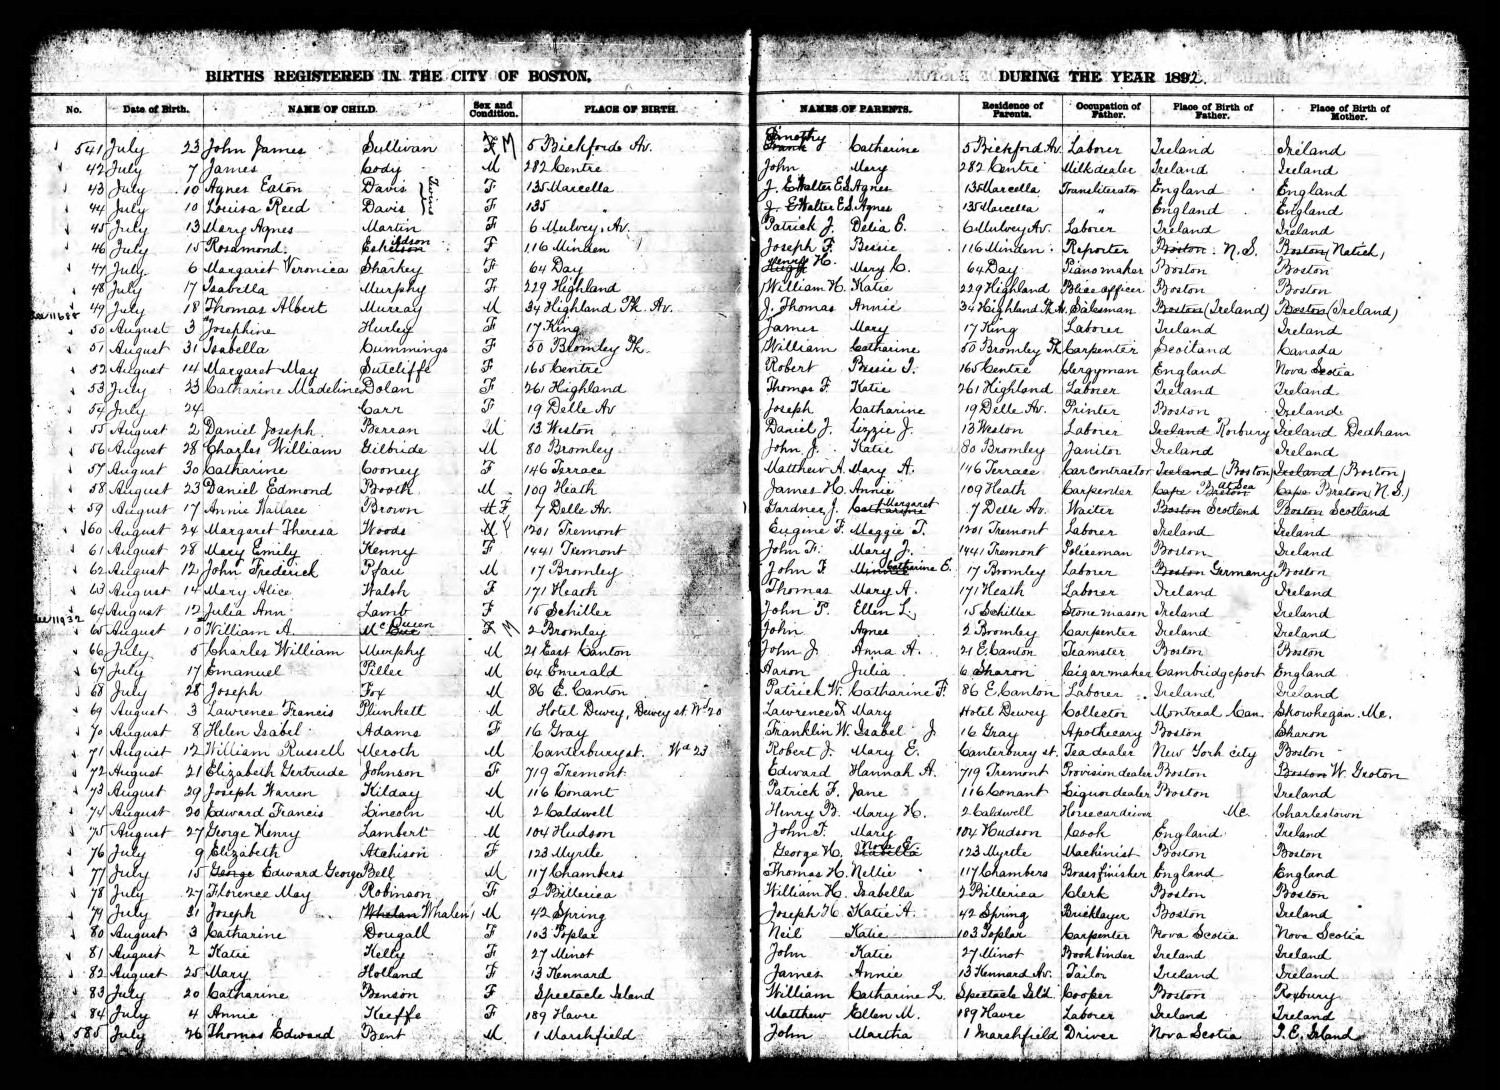 BIRTHS REGISTERED IN THE CITY OF BOSTON, DURING THE YEAR 1892.
No. Date of Birth. NAME OF CHILD. Sex and Condition. PLACE OF BIRTH. NAMES OF PARENTS. Residence of Parents. Occupation of Father. Place of Birth of Father. Place of Birth of Mother.
541 July 23 John James Sullivan F M 5 Bickford Av. Timothy Frank J Catherine 5 Bickford Av. Laborer Ireland Ireland
42 July 7 James Cody M 282 Centre John Mary 282 Centre Milkdealer Ireland Ireland
43 July 10 Agnes Eaton Davis Twins F 135 Marcella J. E Walter E.S. Agnes 135 Marcella Transliterator England England
44 July 10 Louisa Reed Davis F 135 " J. E Walter E.S. Agnes 135 Marcella " England England
45 July 13 Mary Agnes Martin F 6 Mulvey Av. Patrick J. Delia E. 6 Mulvey Av. Laborer Ireland Ireland
46 July 15 Rosamond F 116 Minden Joseph F. Bessie 116 Minden Reporter Boston N.S. Boston Natick,
47 July 6 Margaret Veronica Sharkey F 64 Day Henry H. Hugh Mary C. 64 Day Pianomaker Boston Boston
48 July 17 Isabella Murphy F 229 Highland William H. Katie 229 Highland Police officer Boston Boston
49 July 18 Thomas Albert Murray M 34 Highland Pk. Av. J. Thomas Annie 34 Highland Pk Av. Salesman Boston (Ireland) Boston (Ireland)
See 11688
50 August 3 Josephine Hurley F 17 King James Mary 17 King Laborer Ireland Ireland
51 August 31 Isabella Cummings F 50 Bromley Pk. William Catharine 50 Bromley Pk Carpenter Scotland Canada
52 August 14 Margaret May Sutcliffe F 165 Centre Robert Bessie I. 165 Centre Clergyman England Nova Scotia
53 July 23 Catharine Madeline Dolan F 261 Highland Thomas F Katie 261 Highland Laborer Ireland Ireland
54 July 24 Carr F 19 Delle Av Joseph Catharine 19 Delle Av. Printer Boston Ireland
55 August 2 Daniel Joseph Berran M 13 Weston Daniel J. Lizzie J. 13 Weston Laborer Ireland Roxbury Ireland Dedham
56 August 28 Charles William Gilbride M 80 Bromley John J. Katie 80 Bromley Janitor Ireland Ireland
57 August 30 Catharine Cooney F 146 Terrace Matthew A. Mary A. 146 Terrace Car contractor Ireland (Boston) Ireland (Boston)
58 August 23 Daniel Edmond Booth M 109 Heath James H. Annie 109 Heath Carpenter Cape Breton at Sea Cape Breton (N.S.)
59 August 17 Annie Wallace Brown M F 7 Delle Av. Gardner J. Catharine Margaret 7 Delle Av. Waiter Boston Scotland Boston Scotland
560 August 24 Margaret Theresa Woods M F 1201 Tremont Eugene F. Maggie T. 1201 Tremont Laborer Ireland Ireland
61 August 28 Mary Emily Kenny F 1441 Tremont John F. Mary J. 1441 Tremont Policeman Boston Ireland
62 August 12 John Frederick Pfau M 17 Bromley John F. Minnie Catharine E. 17 Bromley Laborer Boston Germany Boston
63 August 14 Mary Alice Walsh F 171 Heath Thomas Mary A. 171 Heath Laborer Ireland Ireland
64 August 12 Julia Ann Lamb F 15 Schiller John P. Ellen L. 15 Schiller Stone mason Ireland Ireland
See 11932
65 August 10 William A. McCue Queen F M 2 Bromley John Agnes 2 Bromley Carpenter Ireland Ireland
66 July 5 Charles William Murphy M 21 East Canton John J. Anna A. 21 E. Canton Teamster Boston Boston
67 July 17 Emanuel Piller M 64 Emerald Aaron Julia 6 Sharon Cigarmaker Cambridgeport England
68 July 28 Joseph Fox M 86 E. Canton Patrick W. Catharine F 86 E Canton Laborer Ireland Ireland
69 August 3 Lawrence Francis Plunkett M Hotel Dewey, Dewey st. Wd 20 Lawrence F Mary Hotel Dewey Collector Montreal Can. Skowhegan Me.
70 August 8 Helen Isabel Adams F 16 Gray Franklin W. Isabel J 16 Gray Apothecary Boston Sharon
71 August 12 William Russell Meroth M Canterbury st. Wd 23 Robert J. Mary E. Canterbury st. Teadealer New York city Boston
72 August 21 Elizabeth Gertrude Johnson F 719 Tremont Edward Hannah A. 719 Tremont Provision dealer Boston Boston W. Groton
73 August 29 Joseph Warren Kilday M 116 Conant Patrick F. Jane 116 Conant Liquor dealer Boston Ireland
74 August 20 Edward Francis Lincoln M 2 Caldwell Henry B. Mary H. 2 Caldwell Horsecardriver Me. Charlestown
75 August 27 George Henry Lambert M 104 Hudson John F. Mary 104 Hudson Cook England Ireland
76 July 9 Elizabeth Atchison F 123 Myrtle George H. Isabella Nora E. 123 Myrtle Machinist Boston Boston
77 July 15 George Edward George Bell M 117 Chambers Thomas H. Nellie 117 Chambers Brassfinisher England England
78 July 27 Florence May Robinson F 2 Billerica William H. Isabella 2 Billerica Clerk Boston Boston
79 July 31 Joseph Whelan Whalen M 42 Spring Joseph H. Katie A. 42 Spring Bricklayer Boston Ireland
80 August 3 Catharine Dougall F 103 Poplar Neil Katie 103 Poplar Carpenter Nova Scotia Nova Scotia
81 August 2 Katie Kelly F 27 Minot John Katie 27 Minot Bookbinder Ireland Ireland
82 August 25 Mary Holland F 13 Kennard James Annie 13 Kennard Av. Tailor Ireland Ireland
83 July 20 Catharine Benson F Spectacle Island William Catharine L. Spectacle Isld. Cooper Boston Roxbury
84 July 4 Annie Keeffe F 189 Havre Matthew Ellen M. 189 Havre Laborer Ireland Ireland
585 July 26 Thomas Edward Bent M 1 Marshfield John Martha 1 Marshfield Driver Nova Scotia P. E. Island